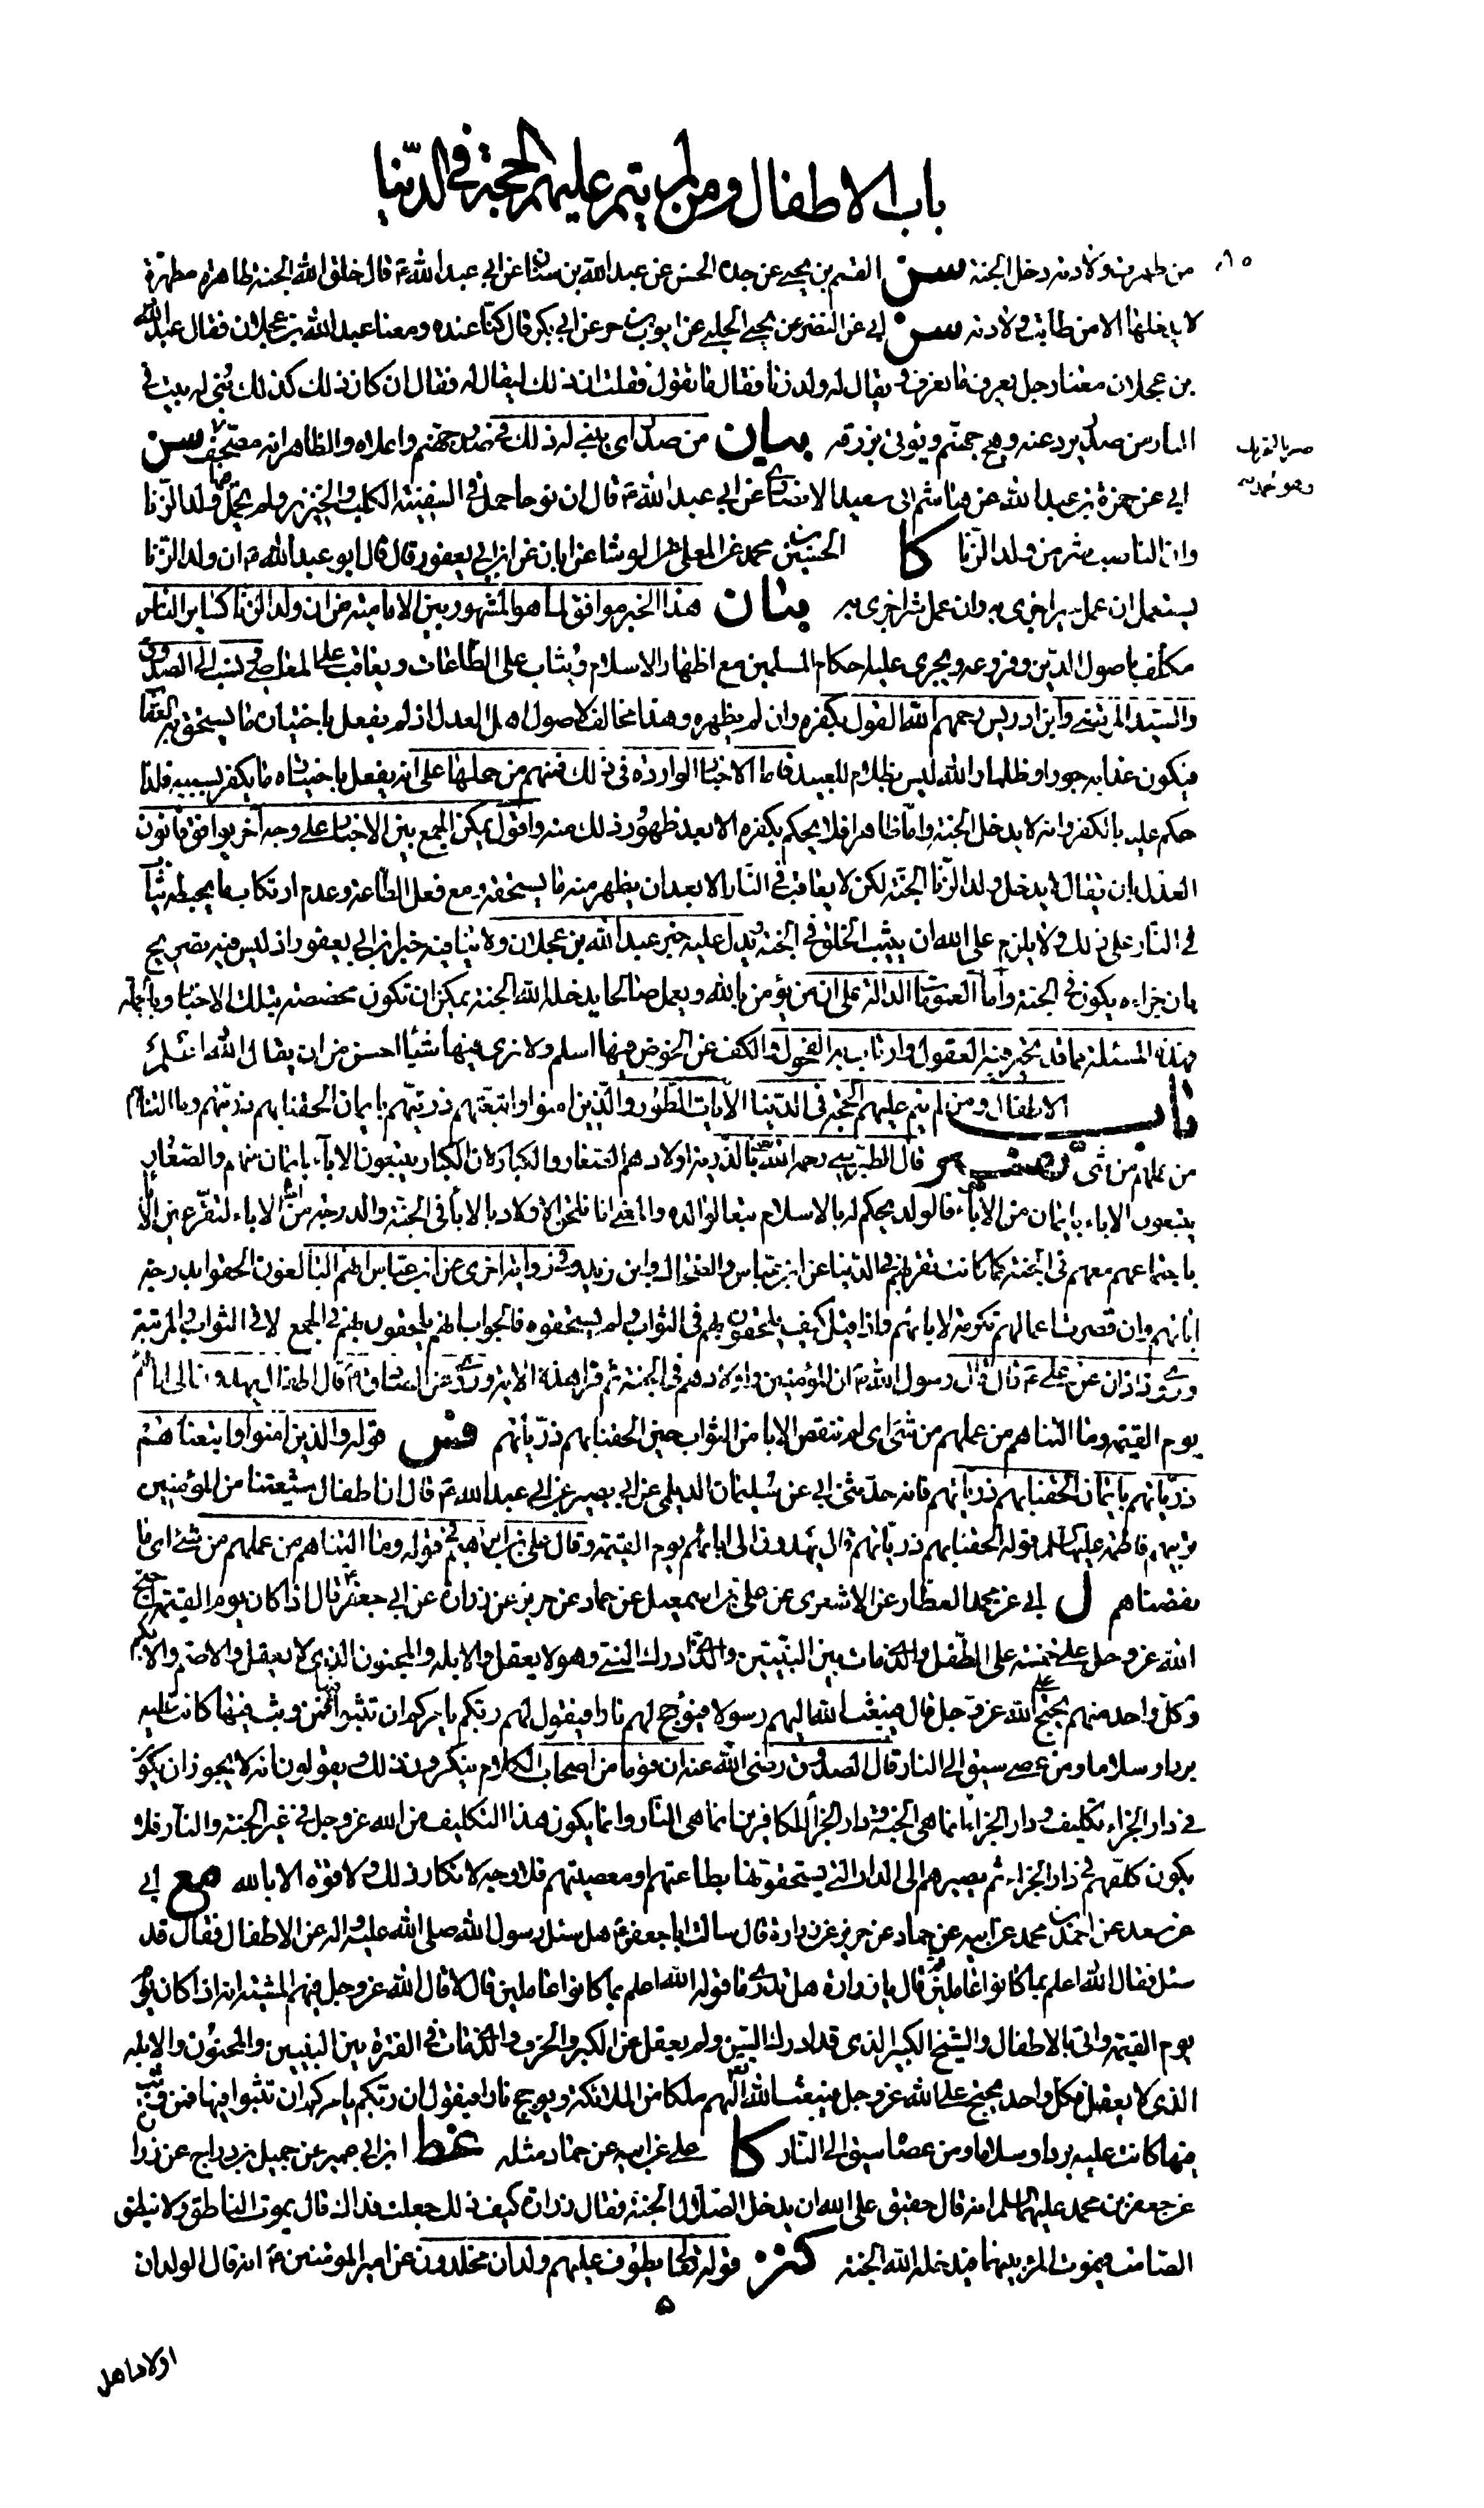 باب الاطفال ومن لم يتم عليهم الحجة في الدنيا
من طهرت ولادته دخل الجنة سن القسم بن يحيى عن جده الحسن عن عبد الله بن سنان عن ابي عبد الله ع قال خلق الله الجنة طاهرة مطهرة
لا يدخلها الا من طابت ولادته سن ابي عن النضر عن يحيى الحلبي عن ايوب بن حر عن ابي بكر قال كنا عنده ومعنا عبد الله بن عجلان فقال عبد الله
بن عجلان معنا رجل يعرف ما نعرف ويقال له ولد زنا فقال ما تقول فقلت ان ذلك ليقال له فقال ان كان ذلك كذلك بني له بيت في
النار من صدر يرد عنه وهج جهنم ويؤتى برزقه بيان من صدر اي يبنى له ذلك في صدر جهنم واعلاه والظاهر انه مصحف سن
ابي عن حمزة بن عبد الله عن هاشم ابي سعيد الانصاري عن ابي عبد الله ع قال ان نوحا حمل في السفينة الكلب والخنزير ولم يحمل فيها ولد الزنا
وان الناصب شر من ولد الزنا كا الحسين بن محمد عن المعلى عن الوشا عن ابان عن ابن ابي يعفور قال قال ابو عبد الله ع ان ولد الزنا
يستعمل ان عمل خيرا جزى به وان عمل شرا جزى به بيان هذا الخبر موافق لما هو المشهور بين الامامية من ان ولد الزنا كساير الناس
مكلف باصول الدين وفروعه ويجرى عليه احكام المسلمين مع اظهار الاسلام ويثاب على الطاعات ويعاقب على المعاصي ونسب الى الصدوق
والسيد المرتضى وابن ادريس رحمهم الله القول بكفره وان لم يظهره وهذا مخالف لاصول اهل العدل اذ لم يفعل باختياره ما يستحق به العقاب
فيكون عذابه جورا وظلما والله ليس بظلام للعبيد فاما الاخبار الواردة في ذلك فمنهم من حملها على انه يفعل باختياره ما يكفر بسببه فلذا
حكم عليه بالكفر وانه لا يدخل الجنة واما ظاهرا فلا يحكم بكفره الا بعد ظهور ذلك منه واقول يمكن الجمع بين الاخبار على وجه آخر يوافق قانون
العدل بان يقال لا يدخل ولد الزنا الجنة لكن لا يعاقب في النار الا بعد ان يظهر منه ما يستحقه ومع فعل الطاعة وعدم ارتكاب ما يحبطه يثاب
في النار على ذلك ولا يلزم على الله ان يثيب الخلق في الجنة ويدل عليه خبر عبد الله بن عجلان ولا ينافيه خبر ابن ابي يعفور اذ ليس فيه تصريح
بان جزاءه يكون في الجنة واما العمومات الدالة على ان من يؤمن بالله ويعمل صالحا يدخله الله الجنة يمكن ان تكون مخصصة بتلك الاخبار وبالجملة
فهذه المسئلة مما قد تحير فيه العقول وارتاب به الفحول والكف عن الخوض فيها اسلم ولا نرى فيها شيئا احسن من ان يقال الله اعلم
باب الاطفال ومن لم يتم عليهم الحجة في الدنيا الآيات الطور والذين امنوا واتبعتهم ذريتهم بايمان الحقنا بهم ذريتهم وما التناهم
من عملهم من شئ تفسير قال الطبرسي رحمه الله يعني بالذرية اولادهم الصغار والكبار لان الكبار يتبعون الاباء بايمان منهم والصغار
يتبعون الاباء بايمان من الاباء فالولد يحكم له بالاسلام تبعا لوالده والمعنى انا نلحق الاولاد بالاباء في الجنة والدرجة من اجل الاباء لتقر عين الاباء
باجتماعهم معهم في الجنة كما كانت تقر بهم في الدنيا عن ابن عباس والضحاك وابن زيد وفي رواية اخرى عن ابن عباس انهم البالغون الحقوا بدرجة
ابائهم وان قصرت اعمالهم تكرمة لابائهم واذا قيل كيف يلحقون بهم في الثواب ولم يستحقوه فالجواب انهم يلحقون بهم في الجمع لا في الثواب والمرتبة
وروى زاذان عن علي ع قال قال رسول الله ص ان المؤمنين واولادهم في الجنة ثم قرا هذه الاية وروى عن الصادق ع قال اطفال المؤمنين يهدون الى ابائهم
يوم القيمة وما التناهم من عملهم من شئ اى لم ننقص الابا من الثواب حين الحقنا بهم ذرياتهم فس قوله والذين امنوا واتبعناهم
ذرياتهم بايمان الحقنا بهم ذرياتهم فانه حدثني ابي عن سليمان الديلمي عن ابي بصير عن ابي عبد الله ع قال ان اطفال شيعتنا من المؤمنين
تربيهم فاطمة عليها السلم قوله الحقنا بهم ذرياتهم قال يهدون الى ابائهم يوم القيمة وقال علي بن ابراهيم في قوله وما التناهم من عملهم من شئ اى ما
نقصناهم ل ابي عن محمد العطار عن الاشعرى عن علي بن اسمعيل عن حماد عن حريز عن زرارة عن ابي جعفر ع قال اذا كان يوم القيمة احتج
الله عز وجل على خمسة على الطفل والذي مات بين النبيين والذي ادرك النبي وهو لا يعقل والابله والمجنون الذي لا يعقل والاصم والابكم
وكل واحد منهم يحتج على الله عز وجل قال فيبعث الله اليهم رسولا فيؤجج لهم نارا فيقول لهم ربكم يامركم ان تثبوا فيها فمن وثب فيها كانت عليه
بردا وسلاما ومن عصى سيق الى النار قال الصدوق رضي الله عنه ان قوما من اصحاب الكلام ينكرون ذلك ويقولون انه لا يجوز ان يكون
في دار الجزاء تكليف ودار الجزاء للمؤمنين انما هي الجنة ودار الجزاء للكافرين انما هي النار وانما يكون هذا التكليف من الله عز وجل في غير الجنة والنار فلا
يكون كلفهم في دار الجزاء ثم يصيرهم الى الدار التي يستحقونها بطاعتهم او معصيتهم فلا وجه لانكار ذلك ولا قوة الا بالله مع ابي
عن سعد عن احمد بن محمد عن ابيه عن حماد عن حريز عن زرارة قال سالت ابا جعفر ع هل سئل رسول الله صلى الله عليه واله عن الاطفال فقال قد
سئل فقال الله اعلم بما كانوا عاملين ثم قال يا زرارة هل تدري ما قوله الله اعلم بما كانوا عاملين قال لا قال الله عز وجل فيهم المشية انه اذا كان
يوم القيمة واتي بالاطفال والشيخ الكبير الذي قد ادرك السن ولم يعقل من الكبر والخرف والذي مات في الفترة بين النبيين والمجنون والابله
الذي لا يعقل فكل واحد يحتج على الله عز وجل فيبعث الله تعالى اليهم ملكا من الملائكة ويؤجج نارا فيقول ان ربكم يامركم ان تثبوا فيها فمن وثب
فيها كانت عليه بردا وسلاما ومن عصاه سيق الى النار كا علي عن ابيه عن حماد مثله غط ابن ابي عمير عن جميل بن دراج عن زرارة
عن جعفر بن محمد عليهما السلم انه قال حقيق على الله ان يدخل الضلال الجنة فقال زرارة كيف ذلك جعلت فداك قال يموت الناطق ولا ينطق
الصامت فيموت المرء بينهما فيدخله الله الجنة كنز قوله تعالى يطوف عليهم ولدان مخلدون عن امير المؤمنين ع انه قال الولدان
اولاد اهل